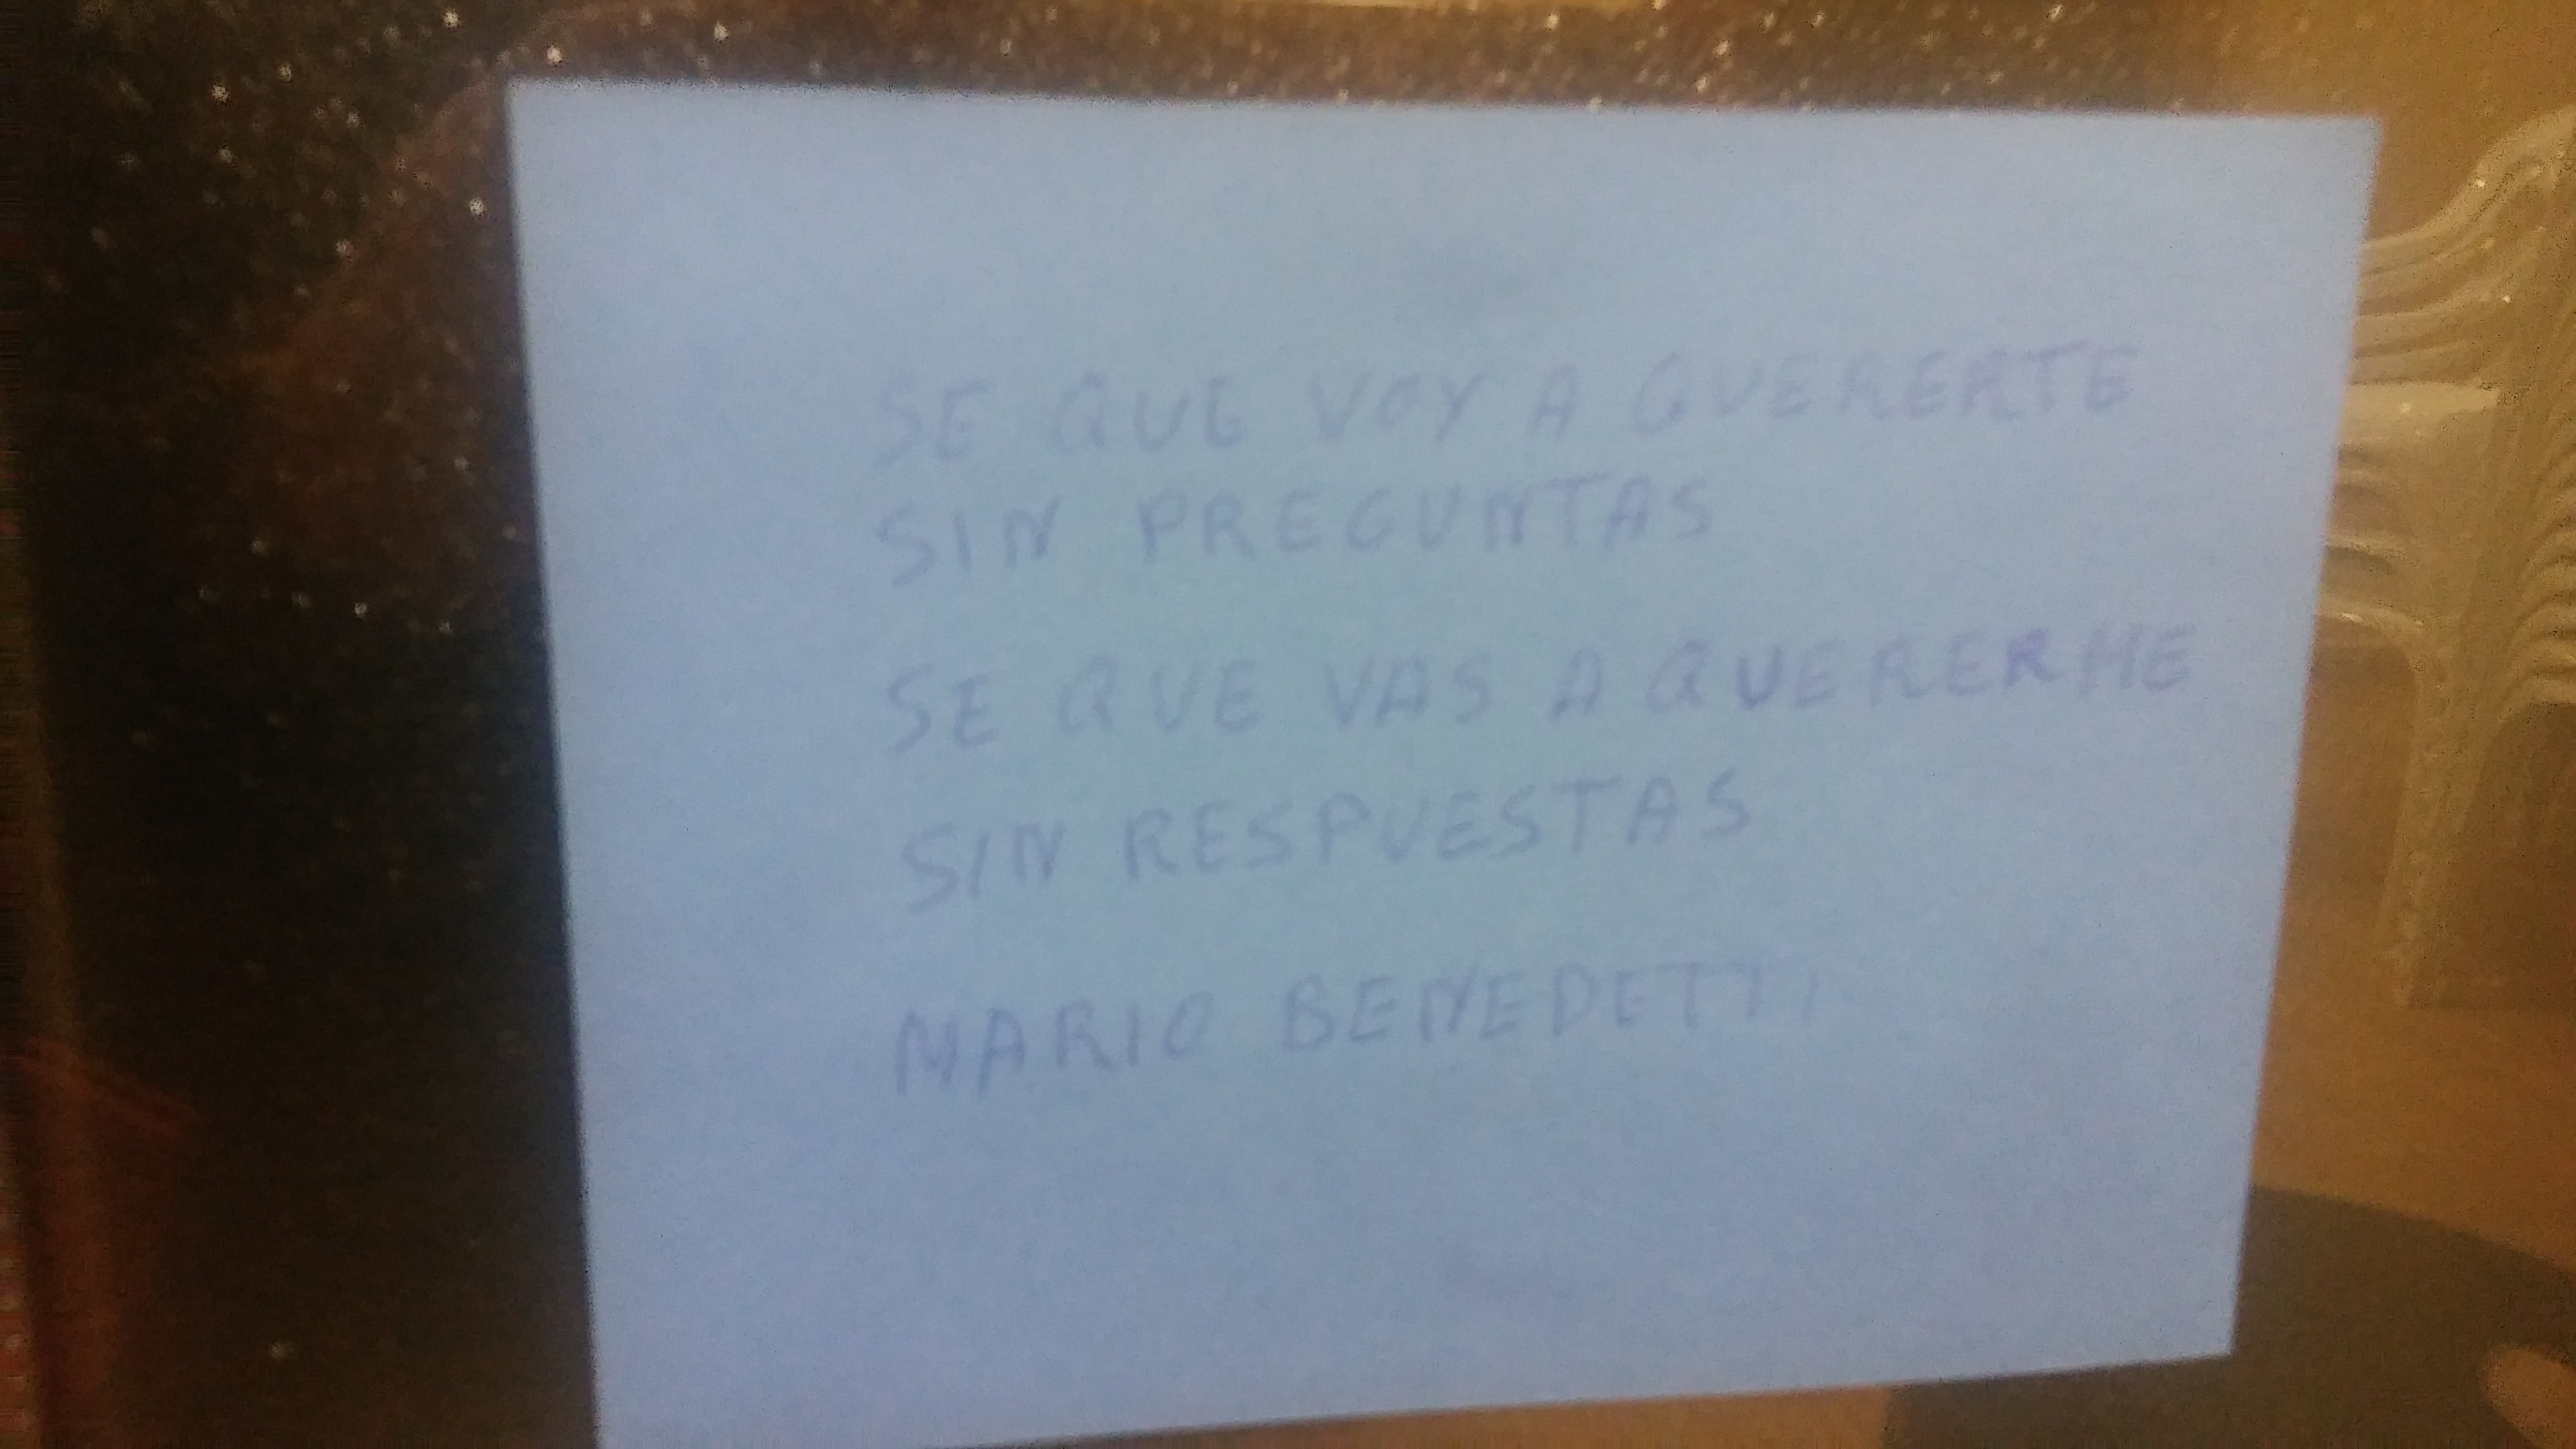 SE QUE VOY A QUERERTE
SIN PREGUNTAS
SE QUE VAS A QUERERME
SIN RESPUESTAS
MARIO BENEDETTI